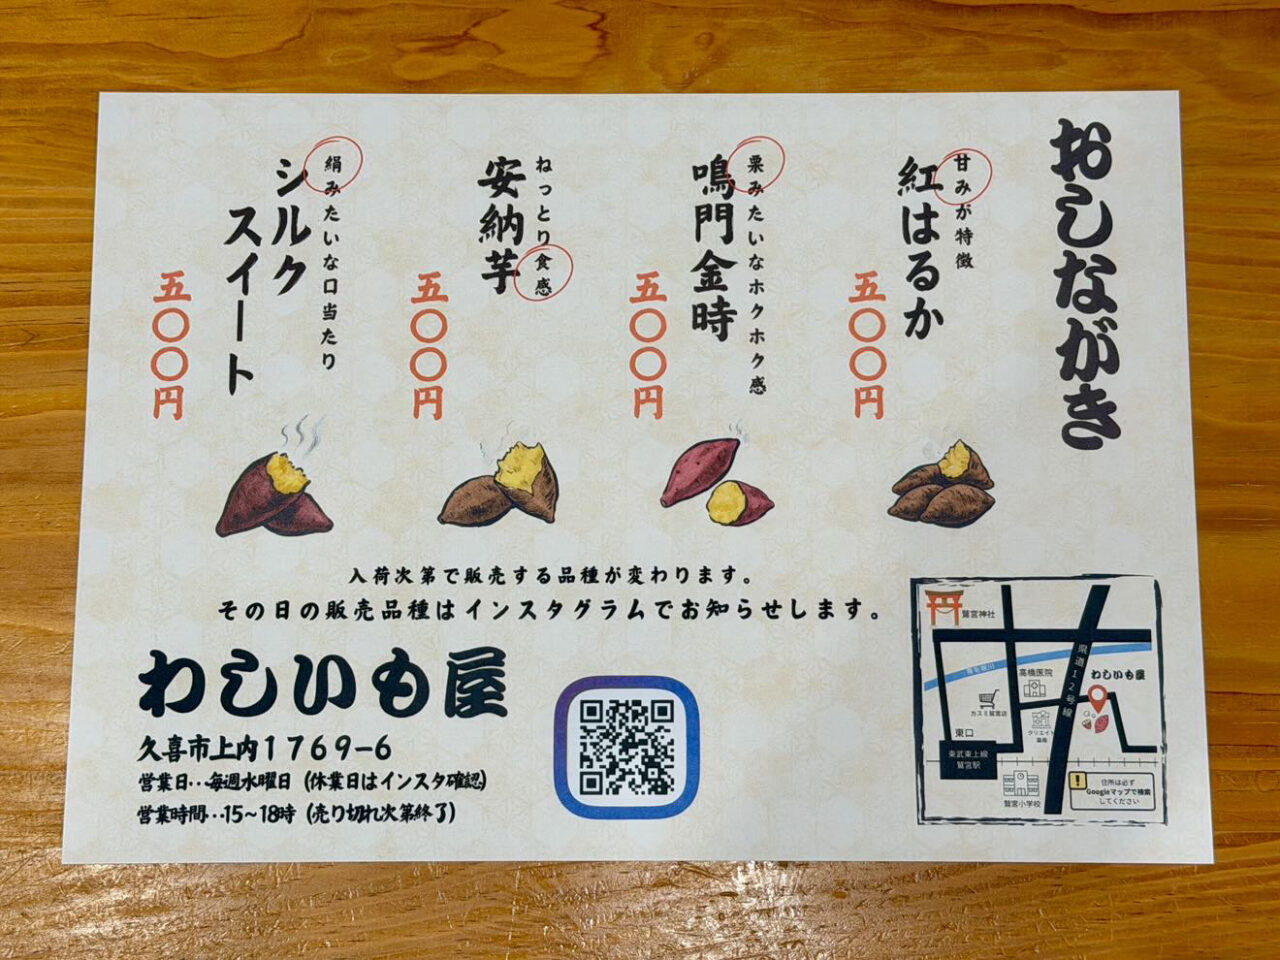 おしながき
甘みが特徴
紅はるか
五〇〇円
栗みたいなホクホク感
鳴門金時
五〇〇円
ねっとり食感
安納芋
五〇〇円
絹みたいな口当たり
シルク
スイート
五〇〇円
入荷次第で販売する品種が変わります。
その日の販売品種はインスタグラムでお知らせします。
わしいも屋
久喜市上内1769-6
営業日…毎週水曜日（休業日はインスタ確認）
営業時間…15～18時（売り切れ次第終了）
鷲宮神社
高橋医院
県道12号線
わしいも屋
カスミ鷲宮店
クリエイト
薬局
東口
東武東上線
鷲宮駅
鷲宮小学校
住所は必ず
Googleマップで検索
してください